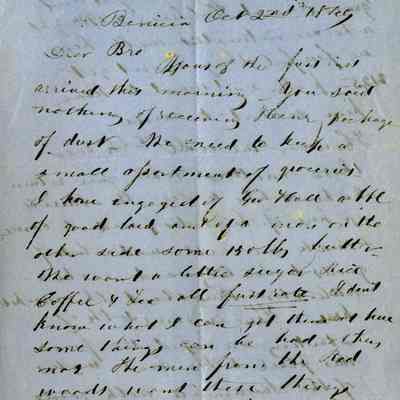 Benicia Oct 2nd 1849
Dear Bro
Yours of the first inst
arrived this morning You said
nothing of receiving package
of dust We need to keep a
small assortment of groceries
I have engaged of Hall a bbl
of good lard and of a man on the
other side some 150 lbs butter
We want a little sugar rice
Coffee & Tea all first rate I dont
know what I can get them at here
some things can be had others
not The men from the Red
woods want these things